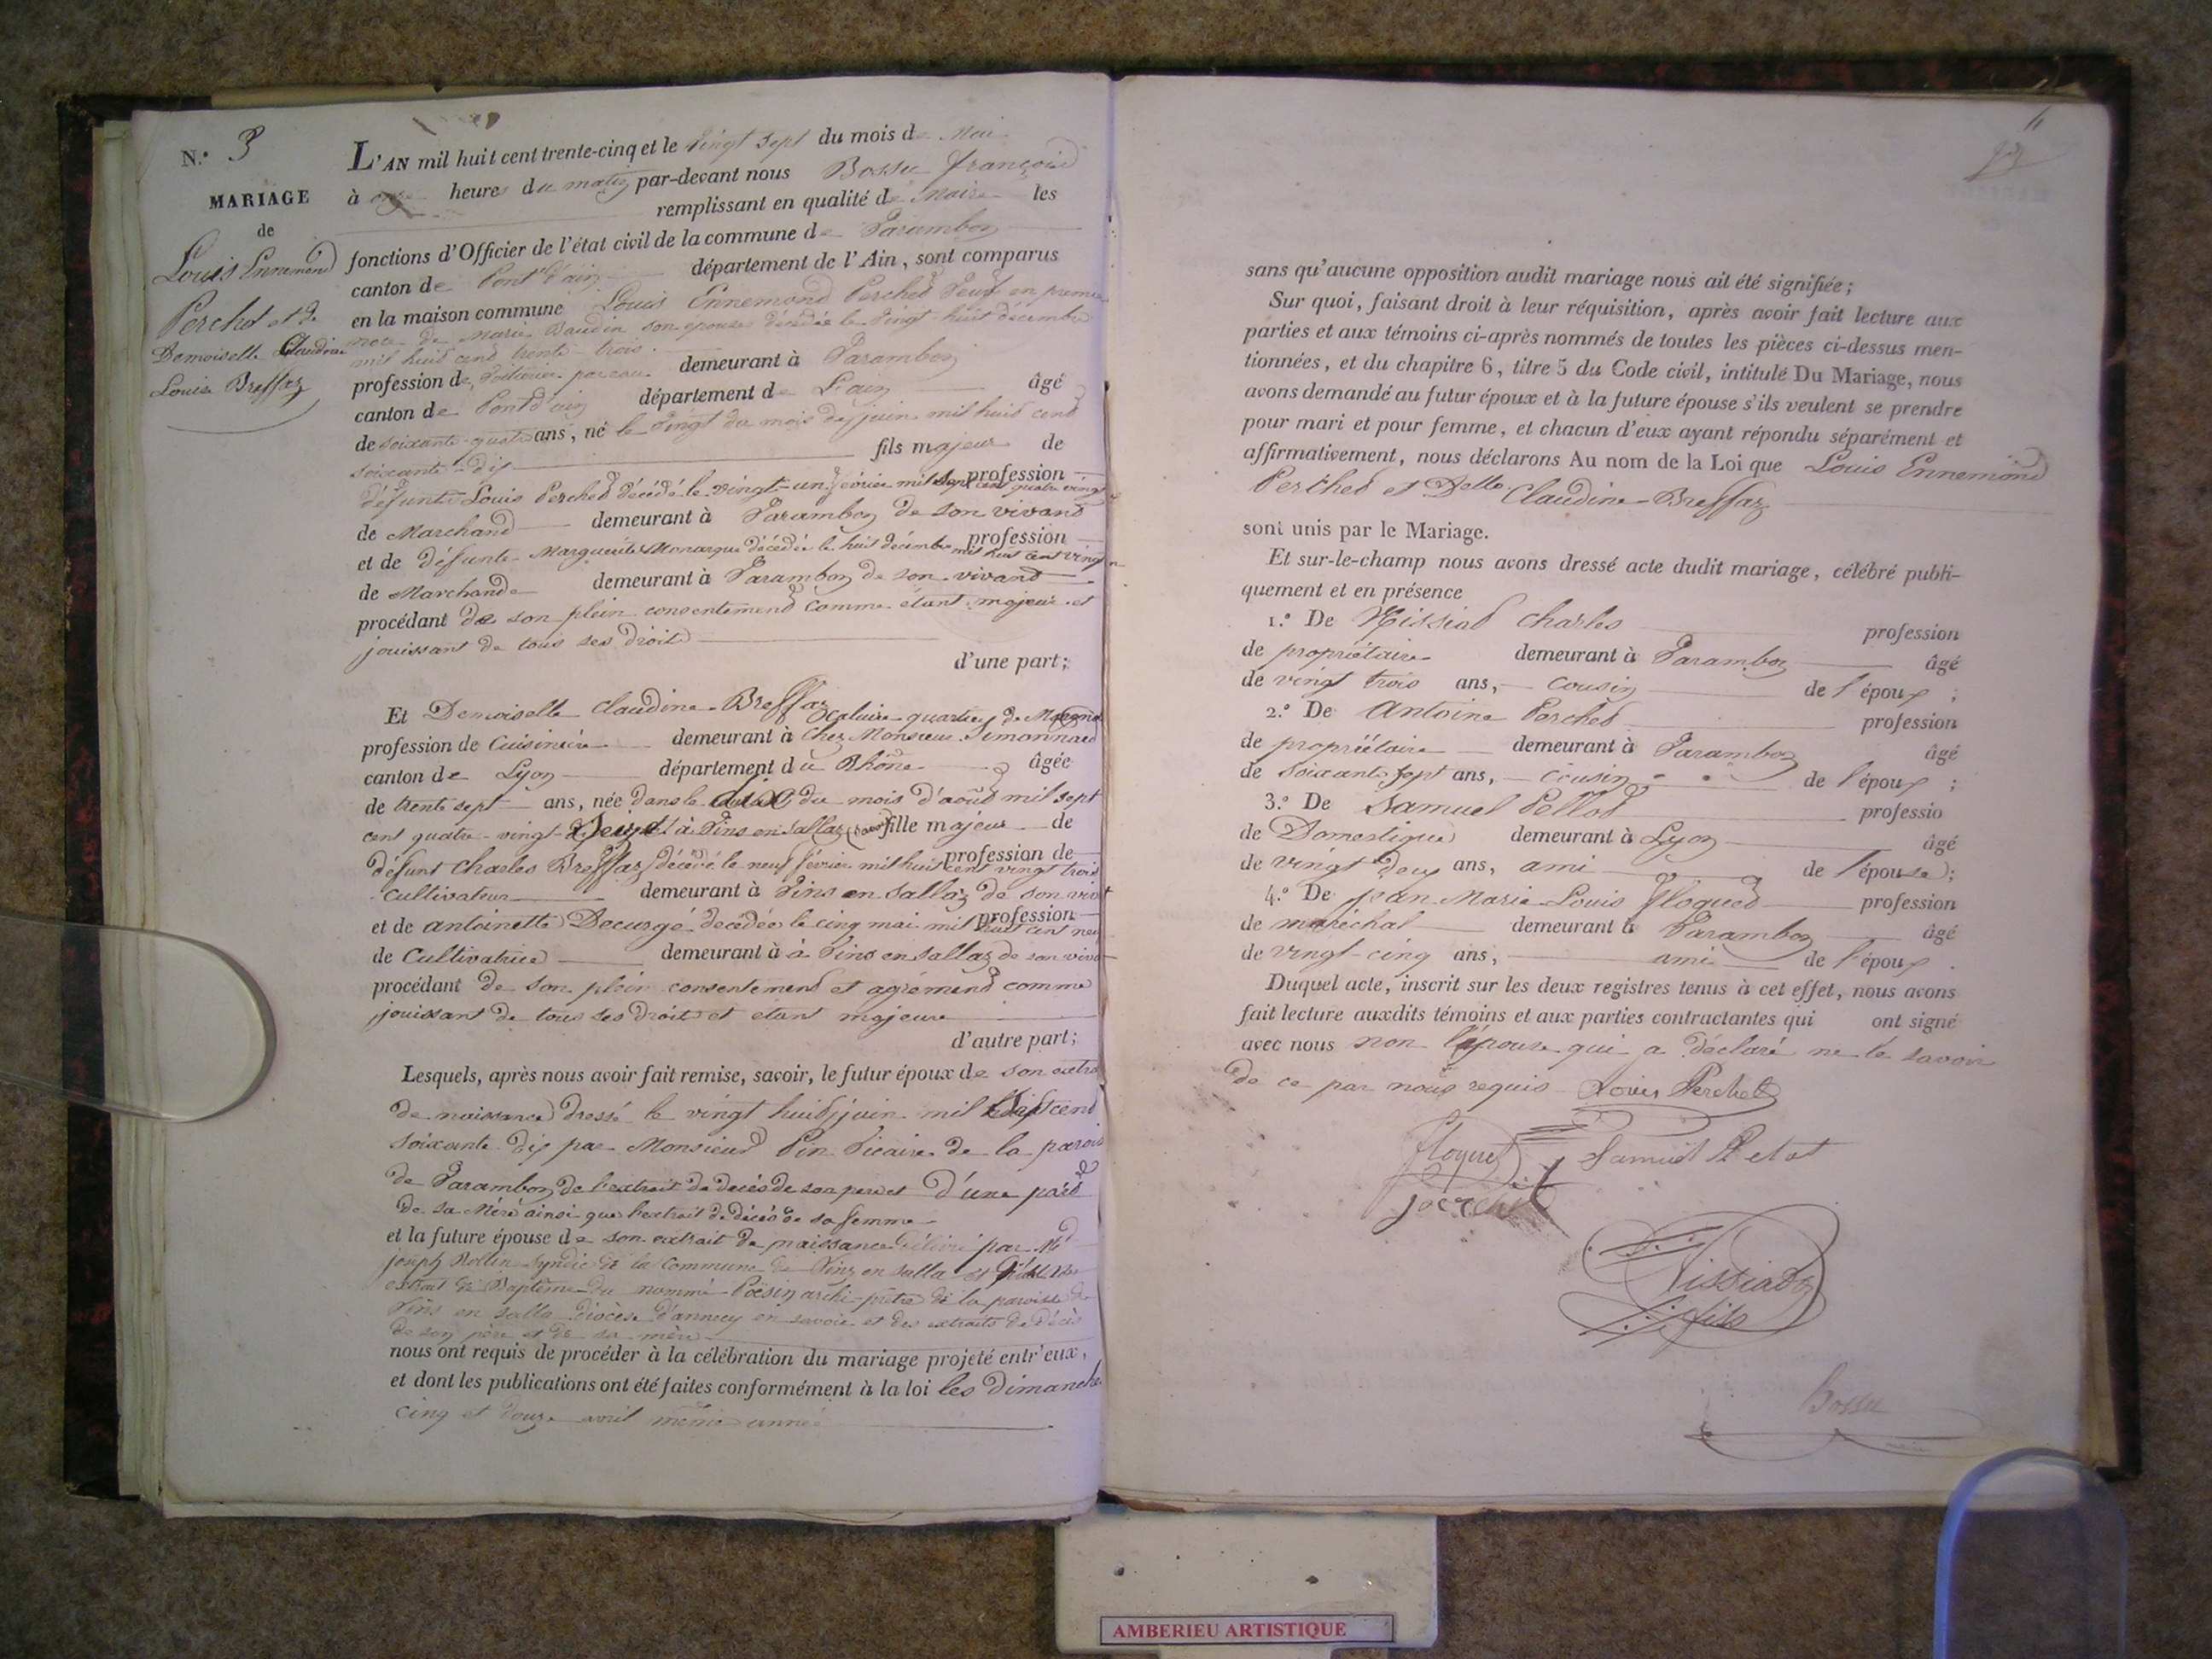 N.° 3
MARIAGE
de
Louis Ennemond
Perchet et de
Demoiselle Claudine
Louise Breffaz
L'AN mil huit cent trente-cinq et le vingt sept du mois de Mai
à onze heures du matin par-devant nous Bossu françois
remplissant en qualité de Maire les
fonctions d'Officier de l'état civil de la commune de Varambon
canton de Pont d'ain département de l'Ain, sont comparus
en la maison commune Louis Ennemond Perchet Veuf en premie
noce de Marie Baudin son épouse décédée le vingt-huit décembre
mil huit cent trente-trois.
profession de demeurant à Varambon
canton de Pont d'ain département de L'ain âgé
de soixante-quatre ans, né le vingt du mois de juin mil huit cent
soixante-dix fils majeur de
défunt Louis Perchet décédé le vingt-un février mil sept cent quatre vingt profession
de Marchand demeurant à Varambon de son vivant
et de défunte Marguerite Monarque décédée le huit décembre mil huit cent vingt profession
de Marchande demeurant à Varambon de son vivant
procédant de son plein consentement comme étant majeur et
jouissant de tous ses droits
d'une part;
Et Demoiselle Claudine Breffaz
profession de Cuisinière demeurant à Chez Monsieur Simonnard
canton de Lyon département du Rhône âgée
de trente sept ans, née dans le dix du mois d'août mil sept
cent quatre-vingt à Vins en Sallaz fille majeur de
défunt Charles Breffaz décédé le neuf février mil huit cent vingt trois profession de
cultivateur demeurant à Vins en Sallaz de son viv
et de antoinette Decurgé décédée le cinq mai mil huit cent neu profession
de Cultivatrice demeurant à à Vins en Sallaz de son viva
procédant de son plein consentement et agrément comme
jouissant de tous ses droits et étant majeure
d'autre part;
Lesquels, après nous avoir fait remise, savoir, le futur époux de son extra
de naissance dressé le vingt huit juin mil Sept cent
soixante dix par Monsieur Pin Vicaire de la parois
de Varambon de l'extrait de décès de son père et d'une part
de sa Mère ainsi que l'extrait de décès de sa femme
et la future épouse de son extrait de naissance délivré par Md
joseph Rollin Syndic de la Commune de Vins en Salla et
extrait de Baptême du nommé Poësin archi-prêtre de la paroisse de
Vins en Salla Diocèse d'annecy en savoie et des extraits de Décès
de son père et de sa mère
nous ont requis de procéder à la célébration du mariage projeté entr'eux,
et dont les publications ont été faites conformément à la loi les Dimanche
cinq et douze avril même année
sans qu'aucune opposition audit mariage nous ait été signifiée;
Sur quoi, faisant droit à leur réquisition, après avoir fait lecture aux
parties et aux témoins ci-après nommés de toutes les pièces ci-dessus men-
tionnées, et du chapitre 6, titre 5 du Code civil, intitulé Du Mariage, nous
avons demandé au futur époux et à la future épouse s'ils veulent se prendre
pour mari et pour femme, et chacun d'eux ayant répondu séparément et
affirmativement, nous déclarons Au nom de la Loi que Louis Ennemond
Perchet et Delle Claudine Breffaz
sont unis par le Mariage.
Et sur-le-champ nous avons dressé acte dudit mariage, célébré publi-
quement et en présence
1.° De Nissiad Charles profession
de propriétaire demeurant à Varambon âgé
de vingt trois ans, cousin de l'époux ;
2.° De Antoine Perchet profession
de propriétaire demeurant à Varambon âgé
de soixante sept ans, cousin de l'époux ;
3.° De Samuel Pellot professio
de Domestique demeurant à Lyon âgé
de vingt Deux ans, ami de l'épouse;
4.° De jean Marie Louis floquet profession
de maréchal demeurant à Varambon âgé
de vingt-cinq ans, ami de l'époux.
Duquel acte, inscrit sur les deux registres tenus à cet effet, nous avons
fait lecture auxdits témoins et aux parties contractantes qui ont signé
avec nous non l'épouse qui a déclaré ne le savoir
de ce par nous requis Louis Perchet
floquet Samuel Pelot
perchet
Nissiad
fils
Bossu
AMBERIEU ARTISTIQUE